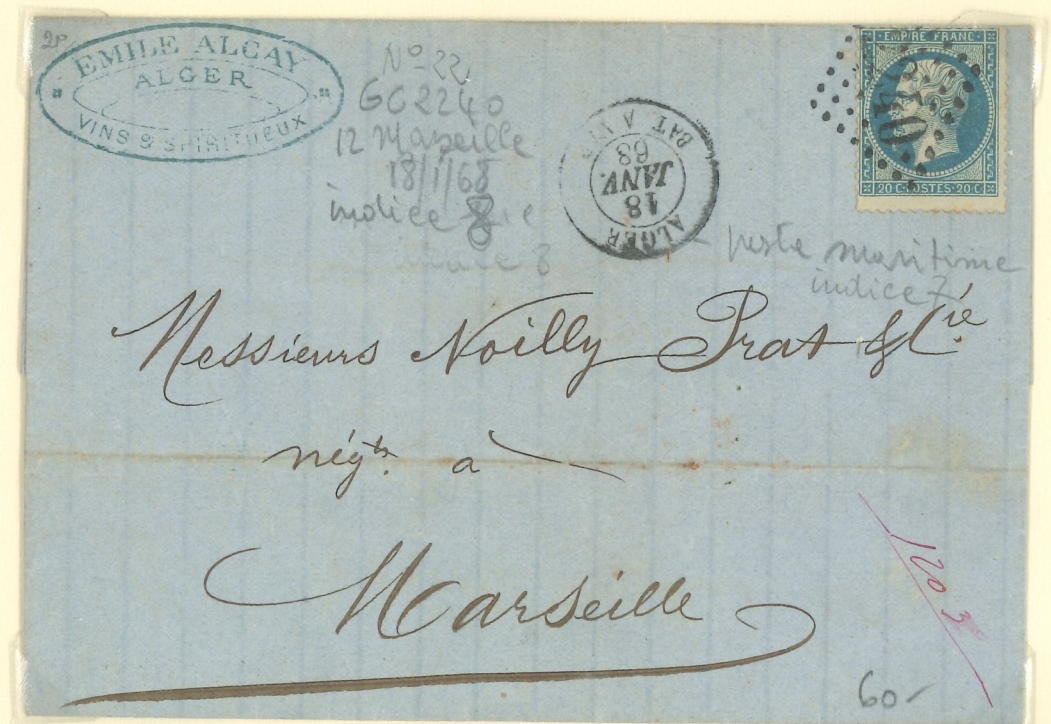 EMILE ALCAY
ALGER
VINS & SPIRITUEUX
No 22
GC 2240
12 Marseille
18/1/68
indice 8
indice 8
ALGER
18
JANV.
68
BAT. A VAP.
EMPIRE FRANC
20 C POSTES 20 C
2240
poste maritime
indice 7
Messieurs Noilly Prat & Cie
négts à
Marseille
1203
60-